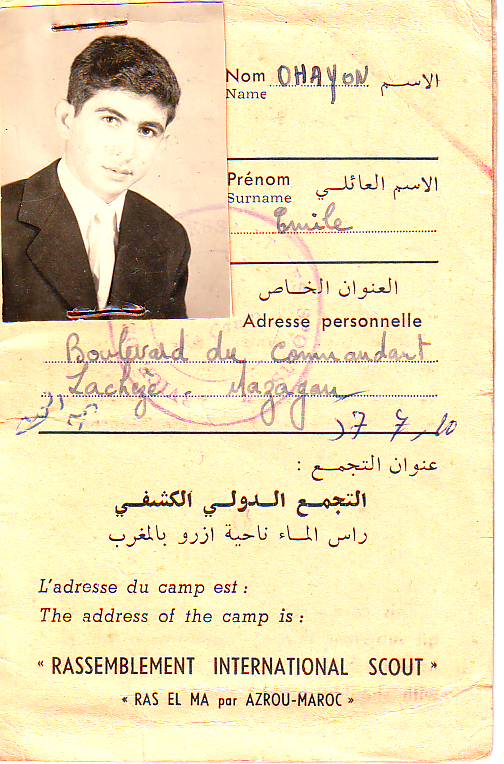 Nom OHAYON الاسم
Name
Prénom الاسم العائلي
Surname
Emile
العنوان الخاص
Adresse personnelle
Boulevard du Commandant
Lachèze. Mazagan
عنوان التجمع :
التجمع الدولي الكشفي
راس الماء ناحية ازرو بالمغرب
L'adresse du camp est :
The address of the camp is :
« RASSEMBLEMENT INTERNATIONAL SCOUT »
« RAS EL MA par AZROU-MAROC »